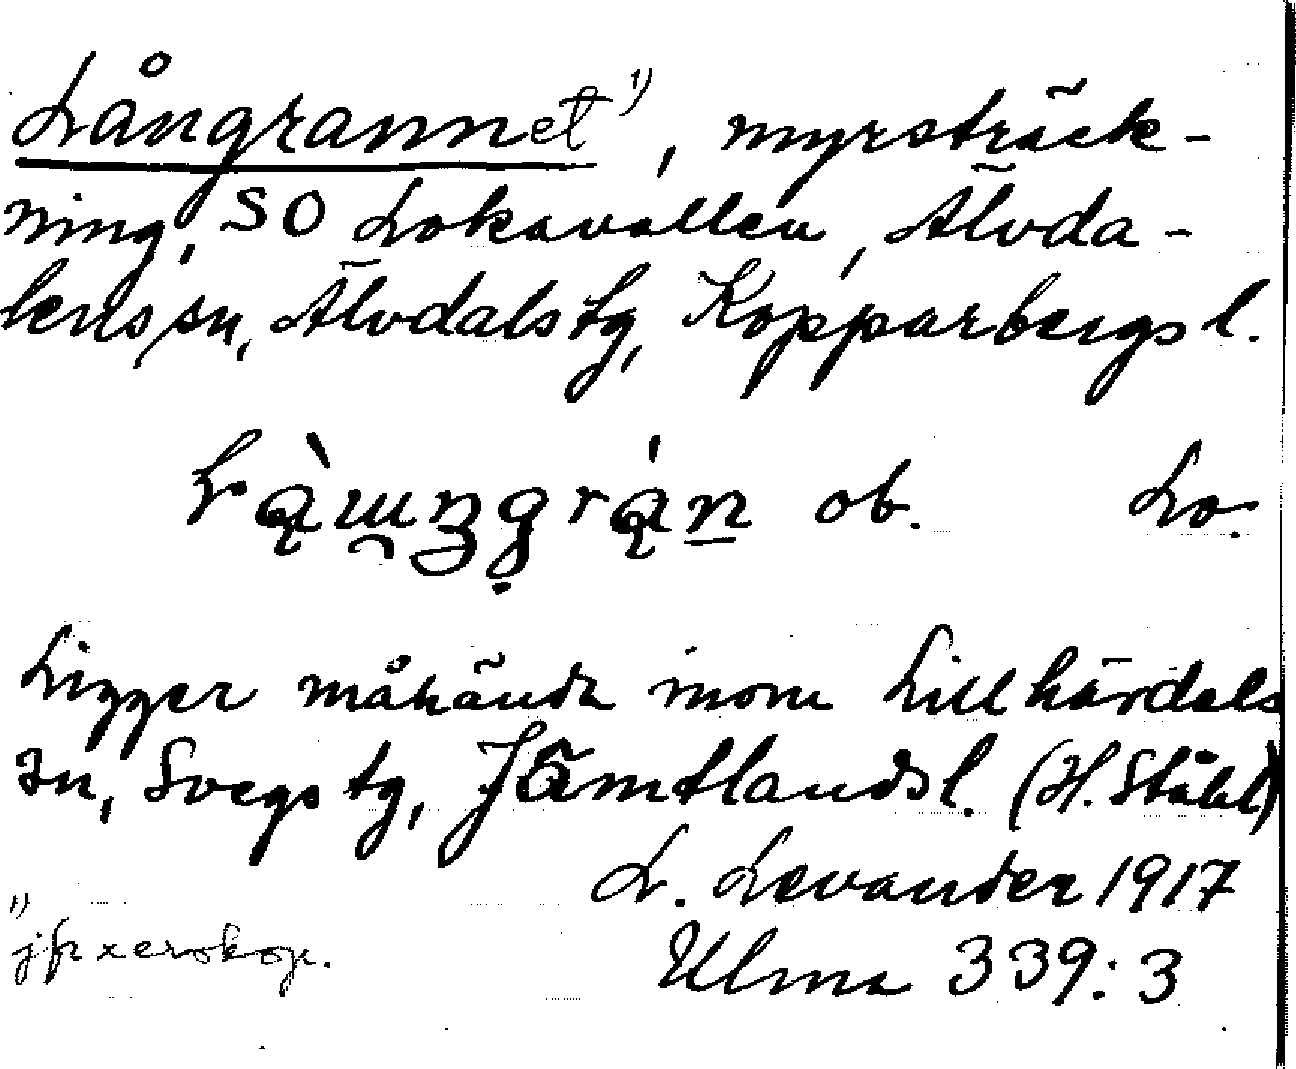 Långrannet ¹⁾, myrsträck-
ning, SO Lokavallen, Älvda-
lens sn, Älvdals tg, Kopparbergs l.
ob. Lo.
Ligger måhända inom Lillhärdals
sn, Svegs tg, Jämtlands l. (H. Ståhl)
L. Levander 1917
¹⁾ jfr xerokop.
Ulma 339:3